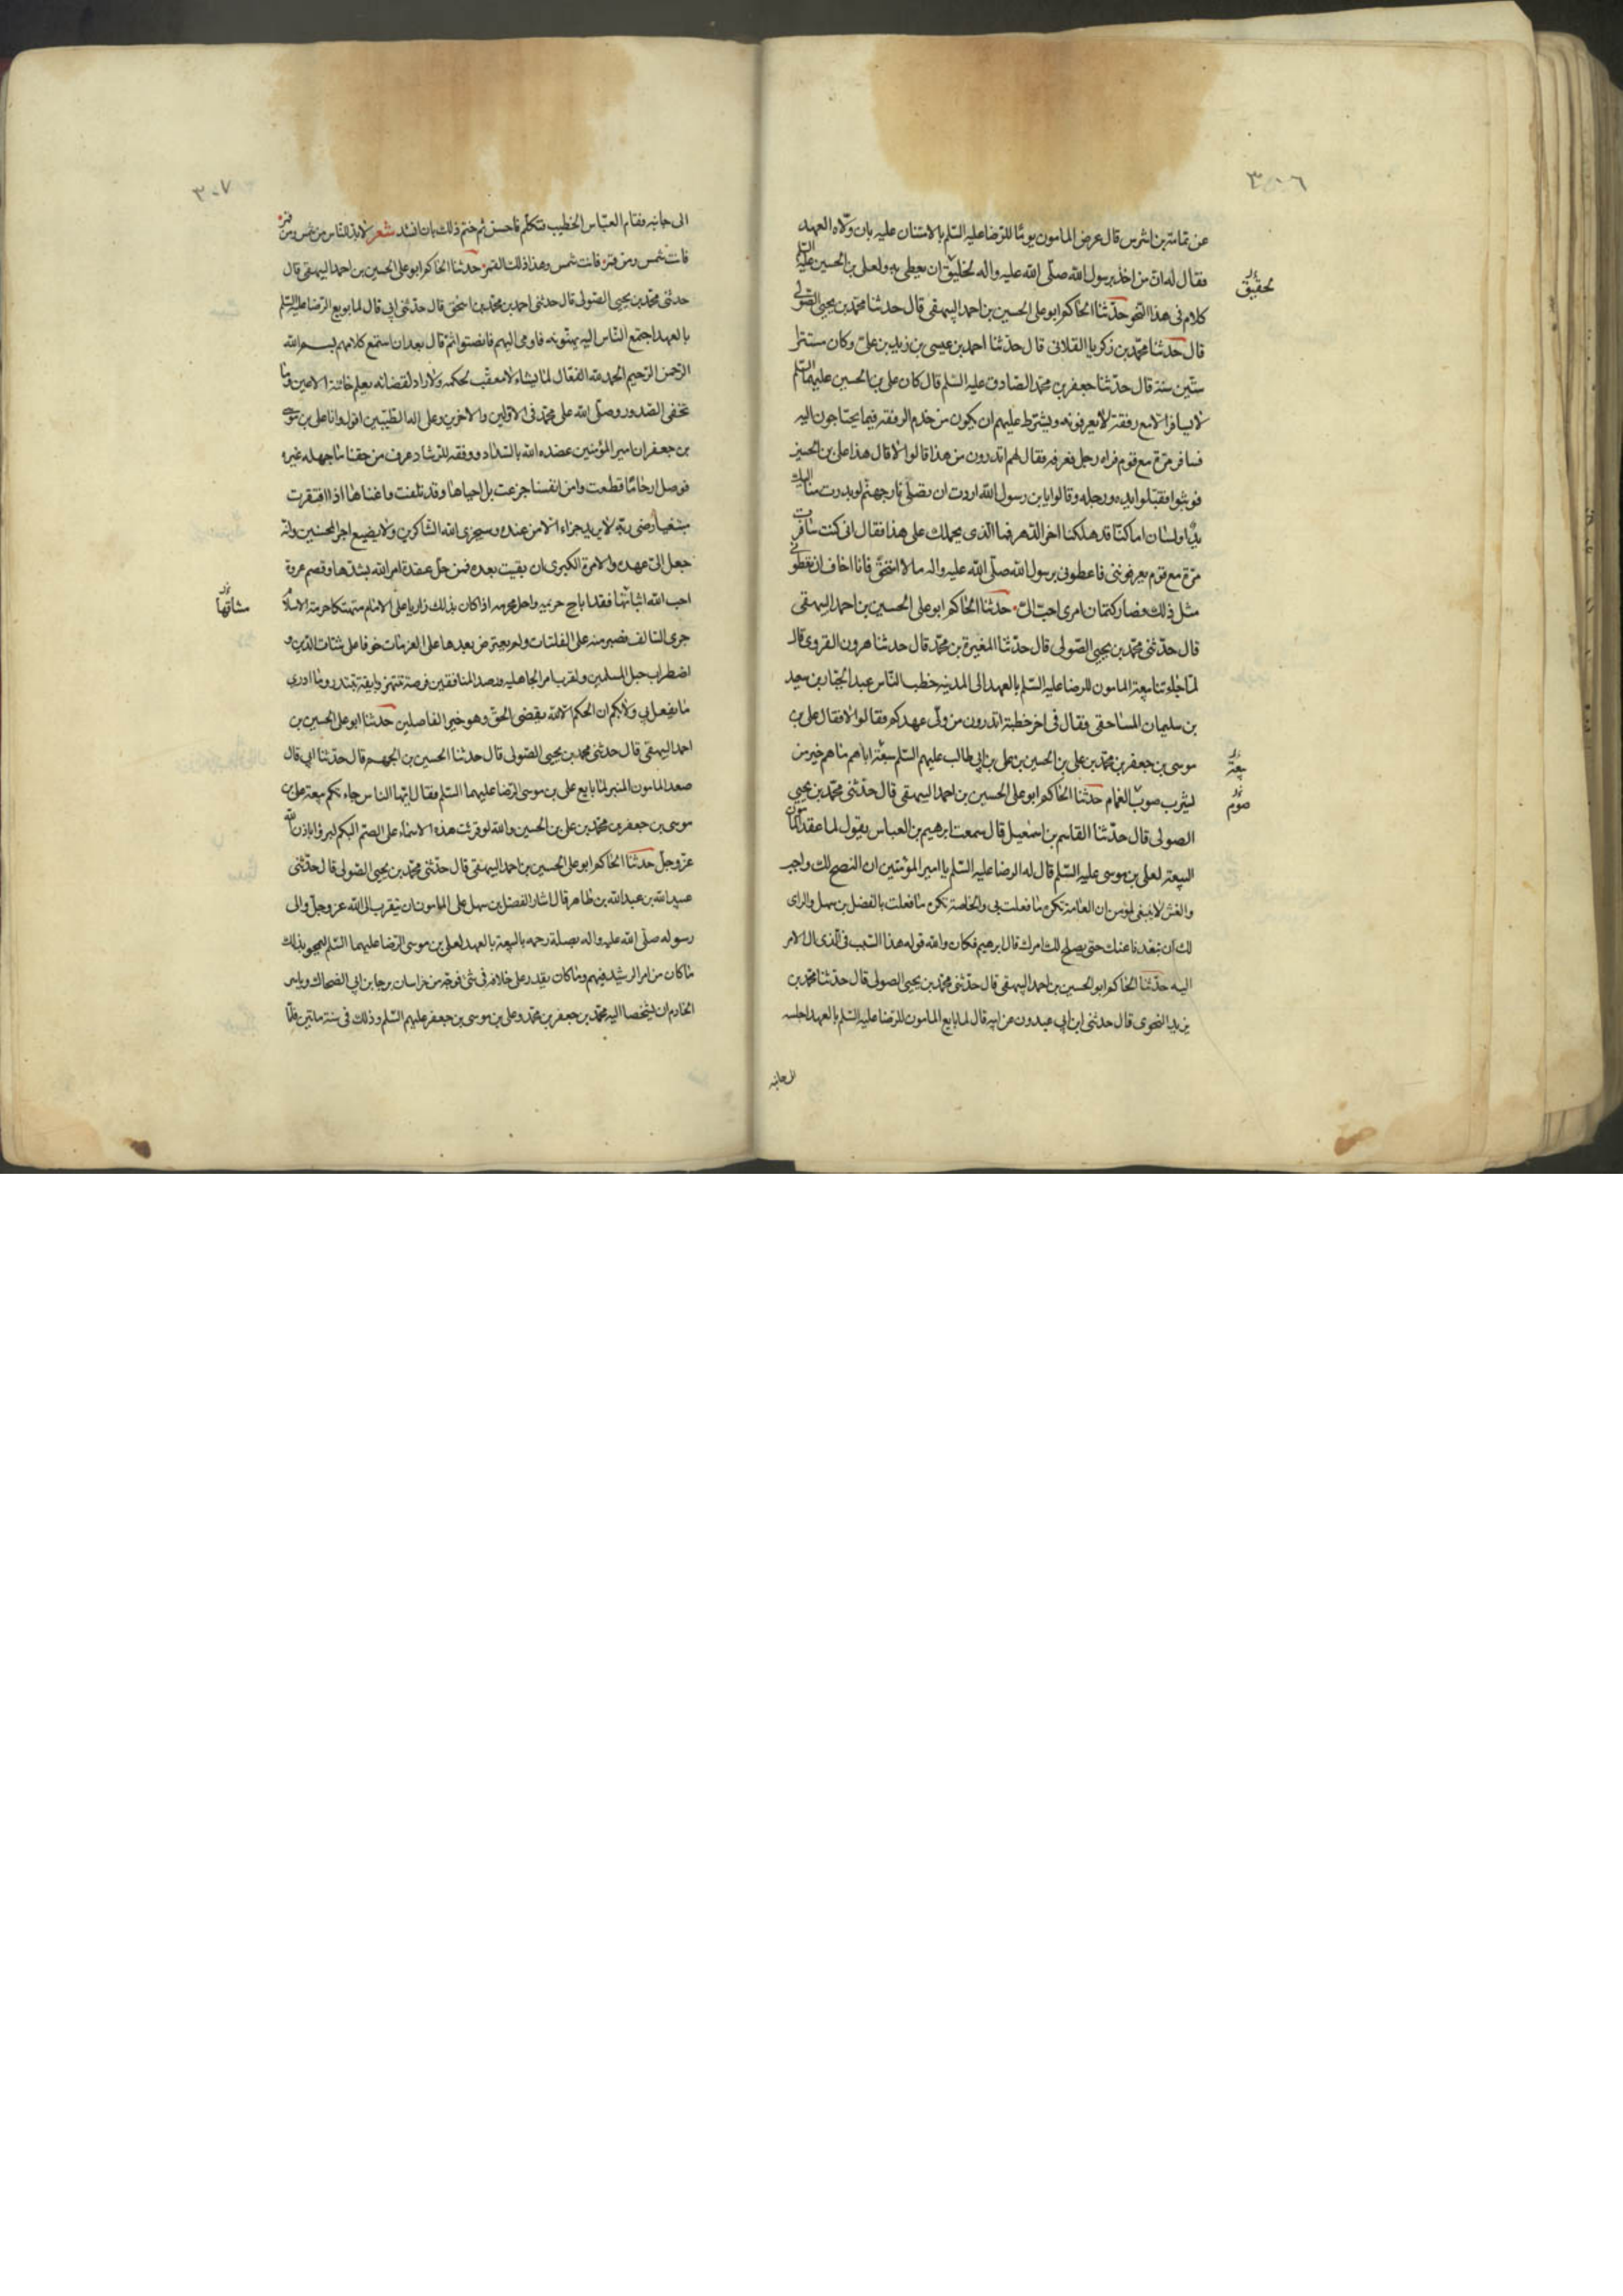 ٣٠٦
عن ثمامة بن اشرس قال عرض المامون يوما للرضا عليه السّلم بالامتنان عليه بان ولّاه العهد
فقال له ان من اخذ برسول الله صلّى الله عليه واله لخليق ان يعطى به ولعلى بن الحسين عليه السّلم
لحقيق
كلام فى هذا النحو حدّثنا الحاكم ابو على الحسين بن احمد البيهقى قال حدثنا محمد بن يحيى الصّولى
قال حدثنا محمّد بن زكريا الغلابى قال حدّثنا احمد بن عيسى بن زيد بن علىّ وكان مستترا
ستّين سنة قال حدّثنا جعفر بن محمّد الصّادق عليه السّلم قال كان على بن الحسين عليهما السّلم
لا يسافر الا مع رفقة لا يعرفونه ويشترط عليهم ان يكون من خدم الرفقة فيما يحتاجون اليه
فسافر مرّة مع قوم فراه رجل فعرفه فقال لهم اتدرون من هذا قالوا لا قال هذا على بن الحسين
فوثبوا فقبّلوا يده ورجله وقالوا يا بن رسول الله اردت ان تصلّى نار جهنّم لو بدرت منا اليك
يد او لسان اما كنّا قد هلكنا اخر الدّهر فما الذى يحملك على هذا فقال انى كنت سافرت
مرّة مع قوم يعرفوننى فاعطونى برسول الله صلّى الله عليه واله ما لا استحقّ فانا اخاف ان تعطونى
مثل ذلك فصار كتمان امرى احبّ الىّ حدثنا الحاكم ابو على الحسين بن احمد البيهقى
قال حدّثنى محمّد بن يحيى الصّولى قال حدّثنا المغيرة بن محمّد قال حدثنا هرون القروى قال
لمّا جاءتنا بيعة المامون للرضا عليه السّلم بالعهد الى المدينه خطب النّاس عبد الجبّار بن سعيد
بن سليمان المساحقى فقال فى اخر خطبته اتدرون من ولىّ عهدكم فقالوا لا فقال على بن
موسى بن جعفر بن محمّد بن على بن الحسين بن على بن ابى طالب عليهم السّلم سبعة اباهم ما هم خير من
بيعة
يشرب صوب الغمام حدّثنا الحاكم ابو على الحسين بن احمد البيهقى قال حدّثنى محمّد بن يحيى
صوم
الصولى قال حدّثنا القاسم بن اسمعيل قال سمعت ابرهيم بن العباس يقول لما عقد المامون
البيعة لعلى بن موسى عليه السّلم قال له الرضا عليه السّلم يا امير المؤمنين ان النصح لك واجب
والغش لا ينبغى لمؤمن ان العامة تكره ما فعلت بى والخاصة تكره ما فعلت بالفضل بن سهل والراى
لك ان تبعدنا عنك حتى يصلح لك امرك قال ابرهيم فكان والله قوله هذا السّبب فى الذى ال الامر
اليه حدّثنا الحاكم ابو الحسين بن احمد البيهقى قال حدّثنى محمّد بن يحيى الصولى قال حدّثنا محمّد بن
يزيد النحوى قال حدثنى ابن ابى عبدون عن ابيه قال لما بايع المامون للرّضا عليه السّلم بالعهد اجلسه
الى جانبه
٣٠٧
الى جانبه فقام العبّاس الخطيب فتكلّم فاحسن ثم ختم ذلك بان انشد شعر لا بد للنّاس من شمس ومن قمر
فانت شمس وهذا ذلك القمر حدثنا الحاكم ابو على الحسين بن احمد البيهقى قال
حدثنى محمّد بن يحيى الصّولى قال حدثنى احمد بن محمّد بن اسحق قال حدّثنى ابى قال لما بويع الرّضا عليه السّلم
بالعهد اجتمع النّاس اليه يهنّونه فاومى اليهم فانصتوا ثمّ قال بعد ان استمع كلامهم بسم الله
الرّحمن الرّحيم الحمد لله الفعّال لما يشاء لا معقّب لحكمه ولا رادّ لقضائه يعلم خائنة الاعين وما
تخفى الصّدور وصلّى الله على محمّد فى الاوّلين والاخرين وعلى اله الطّيّبين اقول وانا على بن موسى
بن جعفر ان امير المؤمنين عضده الله بالسّداد ووفقه للرّشاد عرف من حقنا ما جهله غيره
فوصل ارحامًا قطعت وامن انفسنا جزعت بل احياها وقد تلفت واغناها اذا افتقرت
مبتغيا رضى ربّه لا يريد جزاء الا من عنده وسيجزى الله الشاكرين ولا يضيع اجر المحسنين وانّه
جعل الىّ عهده والامرة الكبرى ان بقيت بعده فمن حلّ عقدة امر الله بشدّها وقصم عروة
احب الله اثباتها فقد اباح حريمه واحل محرمه اذا كان بذلك زاريا على الامام متهتكا حرمة الاسلام
مشاقها
جرى السّالف فصبر منه على الفلتات ولم يعترض بعدها على العزمات خوفا على شتات الدّين و
اضطراب حبل المسلمين ولقرب امر الجاهليه ورصد المنافقين فرصة تنتهز وبايقة تبتدر وما ادرى
ما يفعل بى ولا بكم ان الحكم الا لله يقضى الحقّ وهو خير الفاصلين حدثنا ابو على الحسين بن
احمد البيهقى قال حدثنى محمد بن يحيى الصّولى قال حدثنا الحسين بن الجهم قال حدّثنا ابى قال
صعد المامون المنبر لمّا بايع على بن موسى الرّضا عليهما السّلم فقال ايّها الناس جاءتكم بيعة على بن
موسى بن جعفر بن محمّد بن على بن الحسين والله لو قرئت هذه الاسماء على الصّم البكم لبرؤا باذن الله
عزّ وجلّ حدثنا الحاكم ابو على الحسين بن احمد البيهقى قال حدّثنى محمّد بن يحيى الصّولى قال حدّثنى
عبيد الله بن عبد الله بن طاهر قال اشار الفضل بن سهل على المامون ان يتقرب الى الله عز وجلّ والى
رسوله صلّى الله عليه واله بصلة رحمه بالبيعة بالعهد لعلى بن موسى الرّضا عليهما السّلم ليمحو بذلك
ما كان من امر الرشيد فيهم وما كان يقدر على خلافه فى شئ فوجّه من خراسان برجا بن ابى الضحاك وياسر
الخادم ان يشخصا اليه محمّد بن جعفر بن محمّد وعلى بن موسى بن جعفر عليهم السّلم وذلك فى سنة مائتين فلمّا